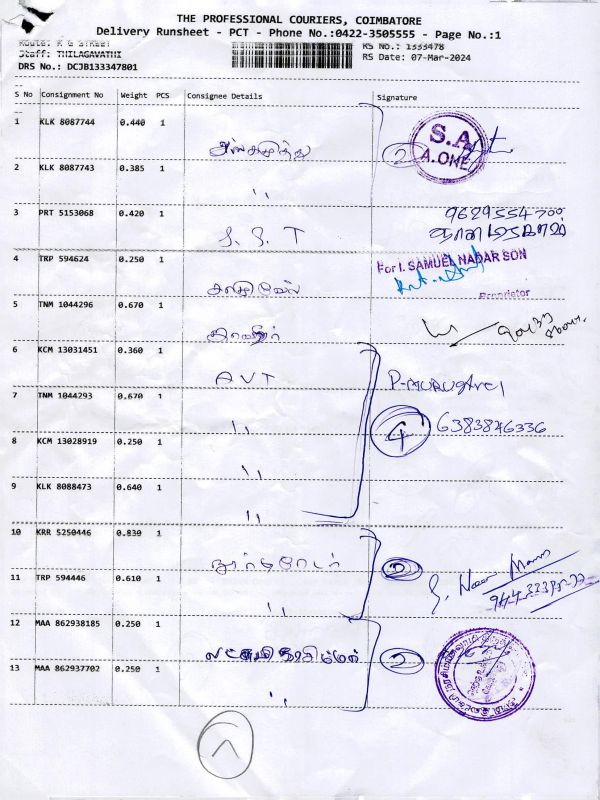 THE PROFESSIONAL COURIERS, COIMBATORE
Delivery Runsheet - PCT - Phone No.:0422-3505555 - Page No.:1
Route: K G Street
Staff: THILAGAVATHI
RS No.: 1333478
DRS No.: DCJB133347801
RS Date: 07-Mar-2024
S No Consignment No Weight PCS Consignee Details Signature
1 KLK 8087744 0.440 1
S.A
A.ONE
2
2 KLK 8087743 0.385 1 ,,
3 PRT 5153068 0.420 1 S. S. T
4 TRP 594624 0.250 1
For I. SAMUEL NADAR SON
Proprietor
5 TNM 1044296 0.670 1
6 KCM 13031451 0.360 1 AVT
7 TNM 1044293 0.670 1 ,,
4 6383846336
8 KCM 13028919 0.250 1 ,,
9 KLK 8088473 0.640 1 ,,
10 KRR 5250446 0.830 1
2
11 TRP 594446 0.610 1 ,,
12 MAA 862938185 0.250 1
2
13 MAA 862937702 0.250 1 ,,